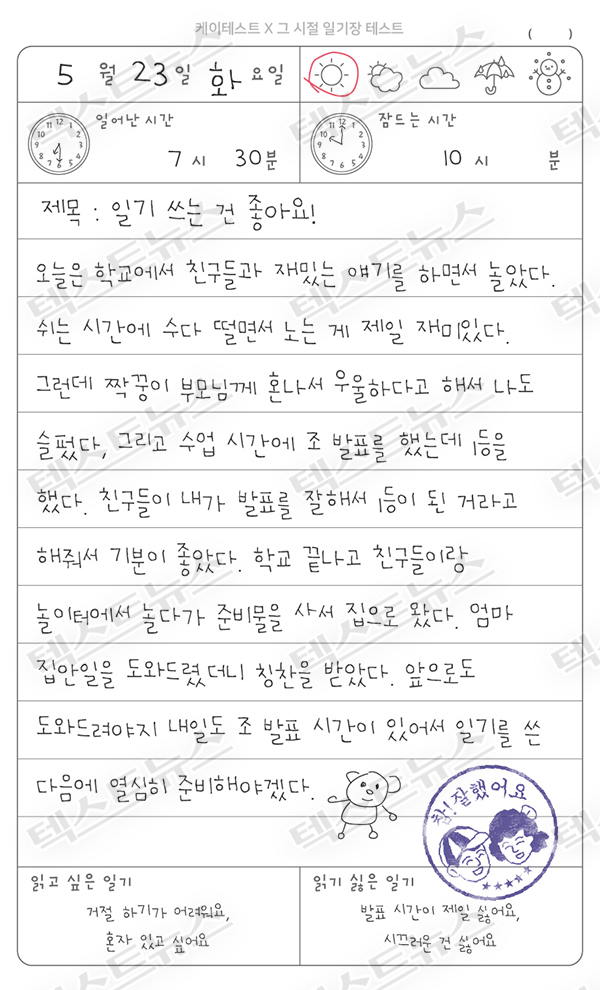 케이테스트 X 그 시절 일기장 테스트
( )
5 월 23 일 화 요일
일어난 시간
7 시 30 분
잠드는 시간
10 시 분
제목 : 일기 쓰는 건 좋아요!
오늘은 학교에서 친구들과 재밌는 얘기를 하면서 놀았다.
쉬는 시간에 수다 떨면서 노는 게 제일 재미있다.
그런데 짝꿍이 부모님께 혼나서 우울하다고 해서 나도
슬펐다, 그리고 수업 시간에 조 발표를 했는데 1등을
했다. 친구들이 내가 발표를 잘해서 1등이 된 거라고
해줘서 기분이 좋았다. 학교 끝나고 친구들이랑
놀이터에서 놀다가 준비물을 사서 집으로 왔다. 엄마
집안일을 도와드렸더니 칭찬을 받았다. 앞으로도
도와드려야지 내일도 조 발표 시간이 있어서 일기를 쓴
다음에 열심히 준비해야겠다.
참! 잘했어요
읽고 싶은 일기
거절 하기가 어려워요,
혼자 있고 싶어요
읽기 싫은 일기
발표 시간이 제일 싫어요,
시끄러운 건 싫어요
텍스트뉴스